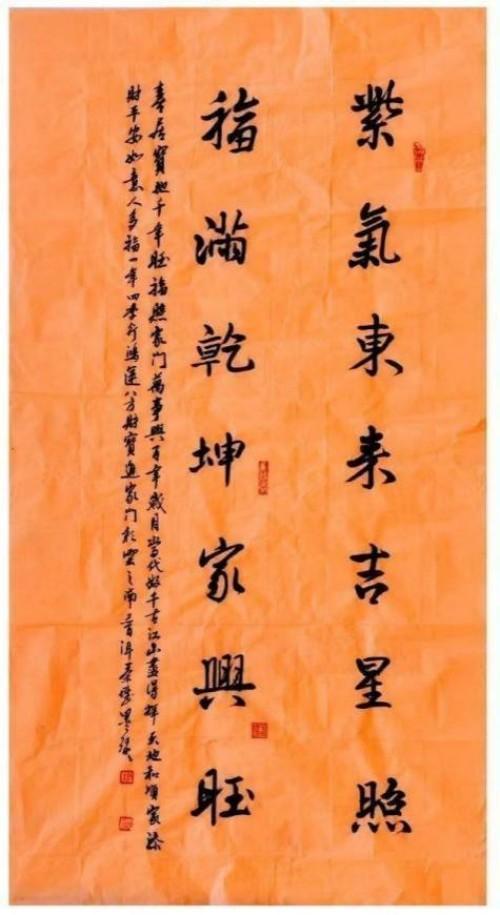 紫氣東来吉星照
福滿乾坤家興旺
喜居寶地千年旺福照家門萬事興百年歲月當代好千古江山盡得輝天地和順家添
財平安如意人多福一年四季行鴻運八方財寶進家門於